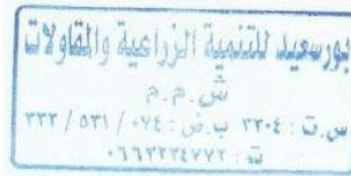 بورسعيد للتنمية الزراعية والمقاولات
ش.م.م
س.ت : ٢٢٠٤ ب.ض : ٠٧٤ / ٥٣١ / ٢٣٢
ت : ٠٦٦٢٢٢٤٧٧٢